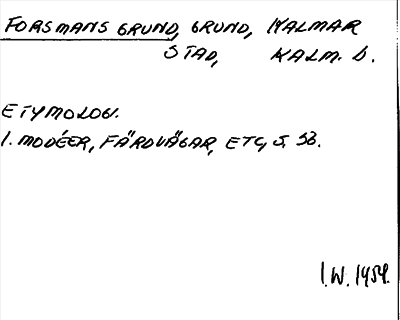 FORSMANS GRUND, GRUND, KALMAR
STAD, KALM. D.
ETYMOLOGI.
I. MODÉER, FÄRDVÄGAR, ETC, S. 53.
I.W. 1954.